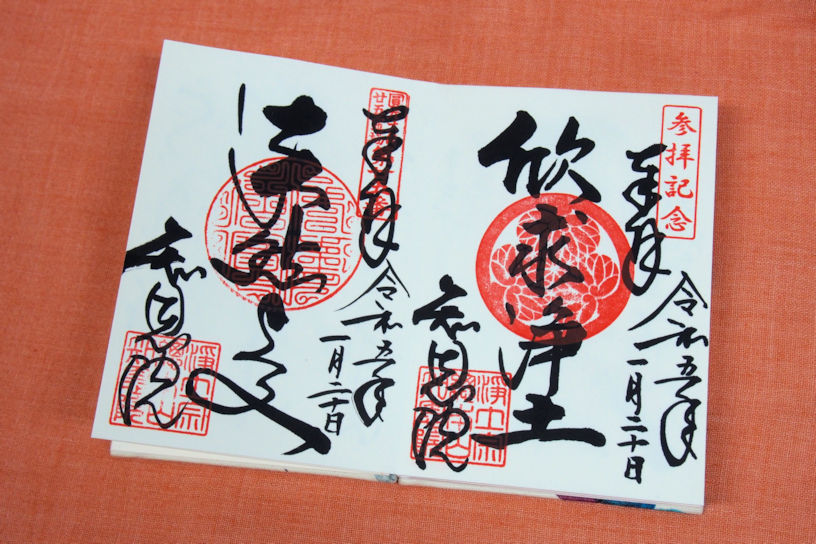 参拝記念
奉拝
令和五年
一月二十日
欣求浄土
知恩院
浄土宗
奉拝
令和五年
一月二十日
法然上人
知恩院
浄土宗